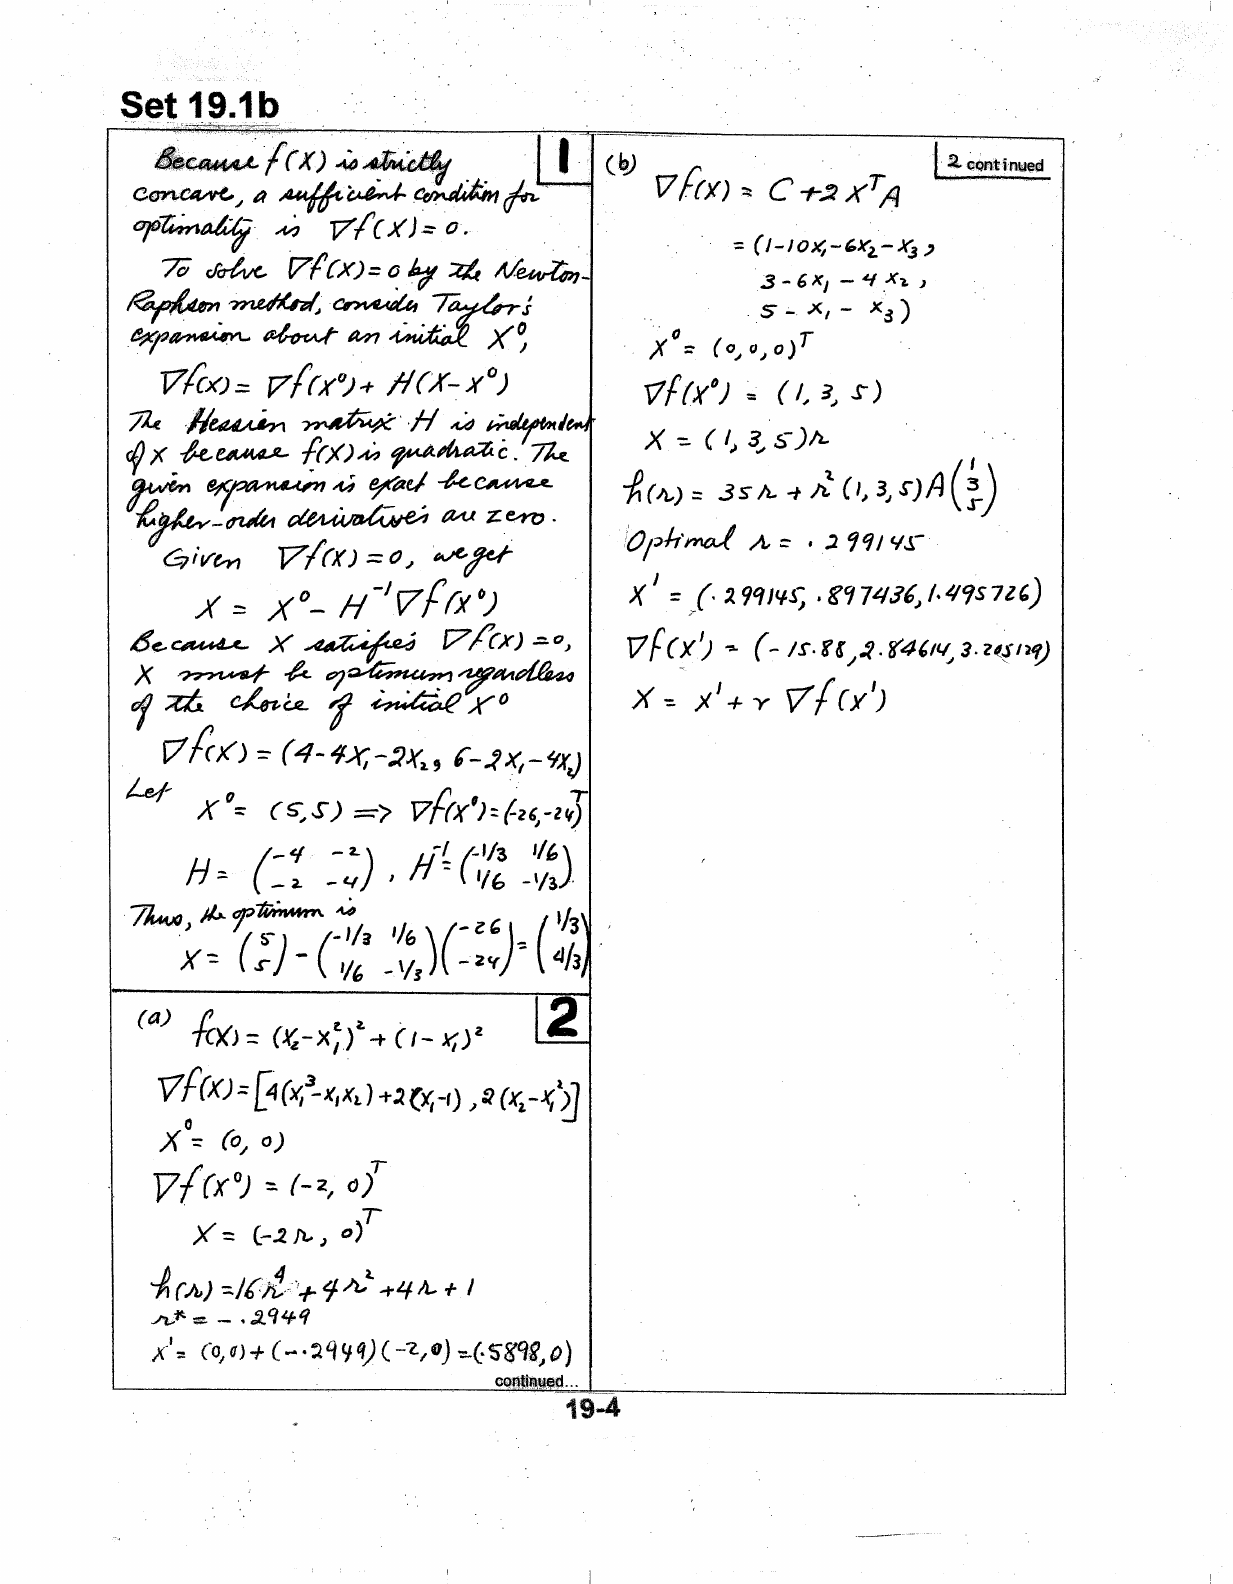 Set 19.1b
1
Because f(X) is strictly
concave, a sufficient condition for
optimality is ∇f(X) = 0.
To solve ∇f(X) = 0 by the Newton-
Raphson method, consider Taylor's
expansion about an initial X⁰,
∇f(X) = ∇f(X⁰) + H(X-X⁰)
The Hessian matrix H is independent
of X because f(X) is quadratic. The
given expansion is exact because
higher-order derivatives are zero.
Given ∇f(X) = 0, we get
X = X⁰ - H⁻¹∇f(X⁰)
Because X satisfies ∇f(X) = 0,
X must be optimum regardless
of the choice of initial X⁰
∇f(X) = (4-4X₁-2X₂, 6-2X₁-4X₂)
Let X⁰ = (5,5) ⟹ ∇f(X⁰) = (-26,-24)ᵀ
H = (-4 -2; -2 -4), H⁻¹ = (-1/3 1/6; 1/6 -1/3).
Thus, the optimum is
X = (5; 5) - (-1/3 1/6; 1/6 -1/3)(-26; -24) = (1/3; 4/3)
2
(a) f(X) = (X₂-X₁²)² + (1-X₁)²
∇f(X) = [4(X₁³-X₁X₂)+2(X₁-1), 2(X₂-X₁²)]
X⁰ = (0, 0)
∇f(X⁰) = (-2, 0)ᵀ
X = (-2r, 0)ᵀ
h(r) = 16r⁴ + 4r² + 4r + 1
r* = -.2949
X¹ = (0,0) + (-.2949)(-2,0) = (.5898,0)
continued...
2 continued
(b)
∇f(X) = C + 2XᵀA
= (1-10X₁-6X₂-X₃,
3-6X₁-4X₂,
5-X₁-X₃)
X⁰ = (0,0,0)ᵀ
∇f(X⁰) = (1, 3, 5)
X = (1, 3, 5)r
h(r) = 35r + r²(1,3,5)A(1; 3; 5)
Optimal r = .299145
X¹ = (.299145, .897436, 1.495726)
∇f(X¹) = (-15.88, 2.84614, 3.205129)
X = X¹ + r∇f(X¹)
19-4